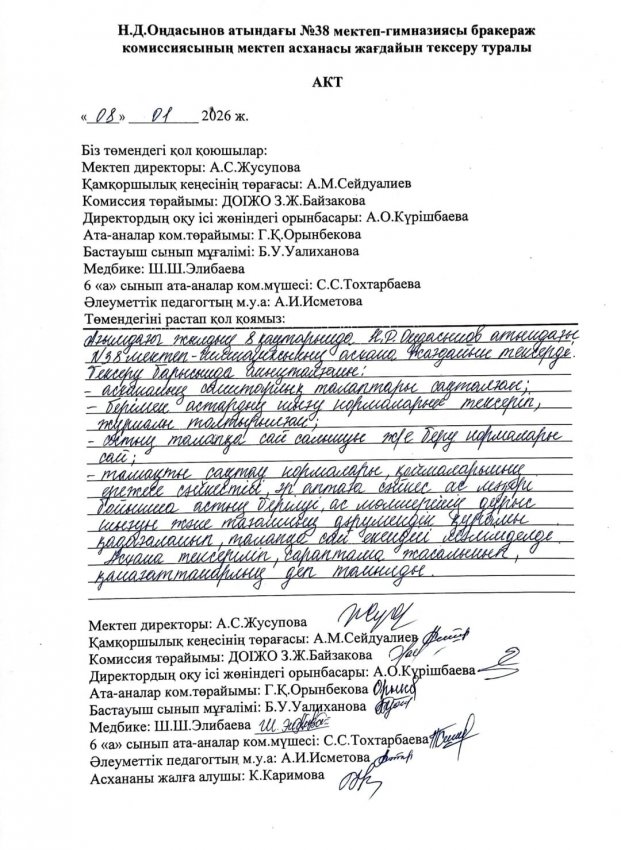 Н.Д.Оңдасынов атындағы №38 мектеп-гимназиясы бракераж
комиссиясының мектеп асханасы жағдайын тексеру туралы
АКТ
«08» 01 2026 ж.
Біз төмендегі қол қоюшылар:
Мектеп директоры: А.С.Жусупова
Қамқоршылық кеңесінің төрағасы: А.М.Сейдуалиев
Комиссия төрайымы: ДОІЖО З.Ж.Байзакова
Директордың оқу ісі жөніндегі орынбасары: А.О.Күрішбаева
Ата-аналар ком.төрайымы: Г.Қ.Орынбекова
Бастауыш сынып мұғалімі: Б.У.Уалиханова
Медбике: Ш.Ш.Элибаева
6 «а» сынып ата-аналар ком.мүшесі: С.С.Тохтарбаева
Әлеуметтік педагогтың м.у.а: А.И.Исметова
Төмендегіні растап қол қоямыз:
Ағымдағы жылдың 8 қаңтарында Н.Д.Оңдасынов атындағы
№38 мектеп-гимназиясының асхана жағдайын тексерде.
Тексеру барысында анықталғаны:
- асхананың санитарлық талаптары сақталған;
- берілген астардың шығу нормаларын тексеріп,
журналы толтырылған;
- астың талапқа сай салынуы және беру нормалары
сай;
- тамақты сақтау нормалары, қоймаларының
ережеге сәйкестігі, әр аптаға сәйкес ас мәзірі
бойынша астың берілуі, ас мөлшерінің дұрыс
шығуын және тағамның дәрумендік құрамын
қадағаланып, талапқа сай екендігі
Асхана тексеріліп, сараптама жасалынып,
қанағаттанарлық деп танылды.
Мектеп директоры: А.С.Жусупова
Қамқоршылық кеңесінің төрағасы: А.М.Сейдуалиев
Комиссия төрайымы: ДОІЖО З.Ж.Байзакова
Директордың оқу ісі жөніндегі орынбасары: А.О.Күрішбаева
Ата-аналар ком.төрайымы: Г.Қ.Орынбекова
Бастауыш сынып мұғалімі: Б.У.Уалиханова
Медбике: Ш.Ш.Элибаева
6 «а» сынып ата-аналар ком.мүшесі: С.С.Тохтарбаева
Әлеуметтік педагогтың м.у.а: А.И.Исметова
Асхананы жалға алушы: К.Каримова